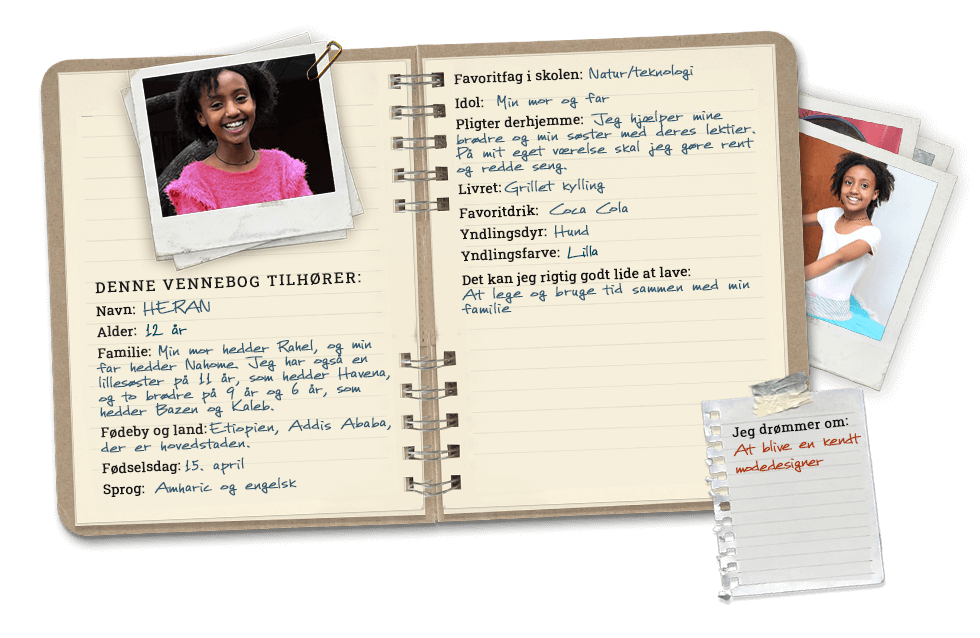 DENNE VENNEBOG TILHØRER:
Navn: HERAN
Alder: 12 år
Familie: Min mor hedder Rahel, og min
far hedder Nahome. Jeg har også en
lillesøster på 11 år, som hedder Havena,
og to brødre på 9 år og 6 år, som
hedder Bazen og Kaleb.
Fødeby og land: Etiopien, Addis Ababa,
der er hovedstaden.
Fødselsdag: 15. april
Sprog: Amharic og engelsk
Favoritfag i skolen: Natur/teknologi
Idol: Min mor og far
Pligter derhjemme: Jeg hjælper mine
brødre og min søster med deres lektier.
På mit eget værelse skal jeg gøre rent
og redde seng.
Livret: Grillet kylling
Favoritdrik: Coca Cola
Yndlingsdyr: Hund
Yndlingsfarve: Lilla
Det kan jeg rigtig godt lide at lave:
At lege og bruge tid sammen med min
familie
Jeg drømmer om:
At blive en kendt
modedesigner